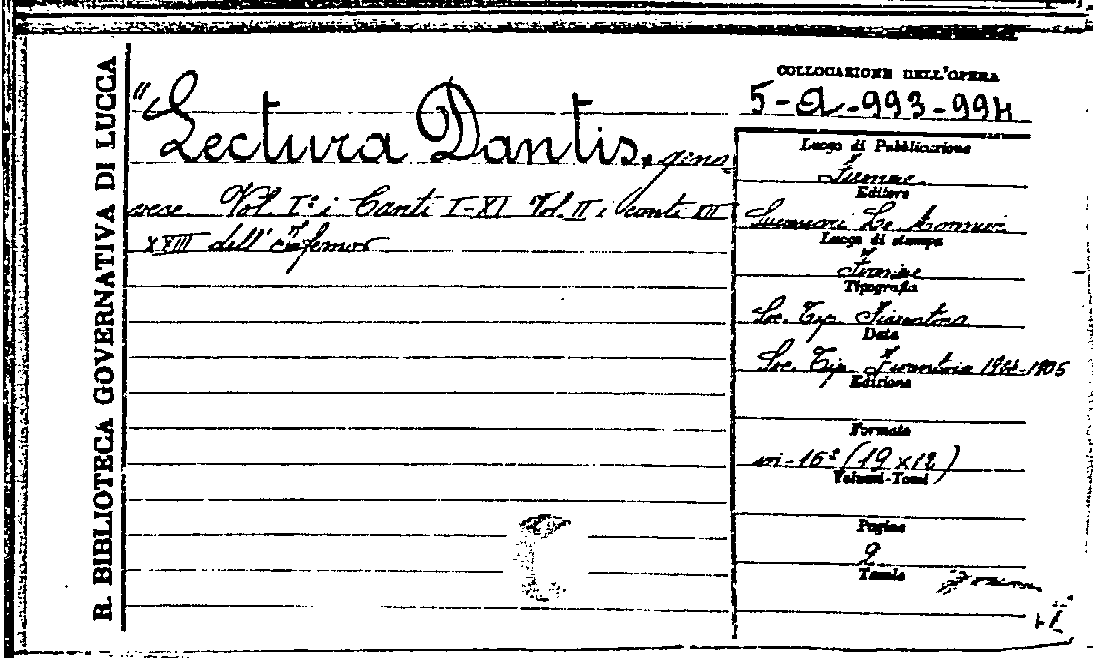 R. BIBLIOTECA GOVERNATIVA DI LUCCA
"Lectura Dantis, geno
vese Vol. I° i Canti I-XI Vol. II i canti XII
XVIII dell'Inferno
COLLOCAZIONE DELL'OPERA
5-a-993-994
Luogo di Pubblicazione
Firenze
Editore
Successori Le Monnier
Luogo di stampa
Firenze
Tipografia
Soc. Tip. Fiorentina
Data
Soc. Tip. Fiorentina 1904-1905
Edizione
Formato
in-16° (19x12)
Volumi-Tomi
Pagine
2
Tavole